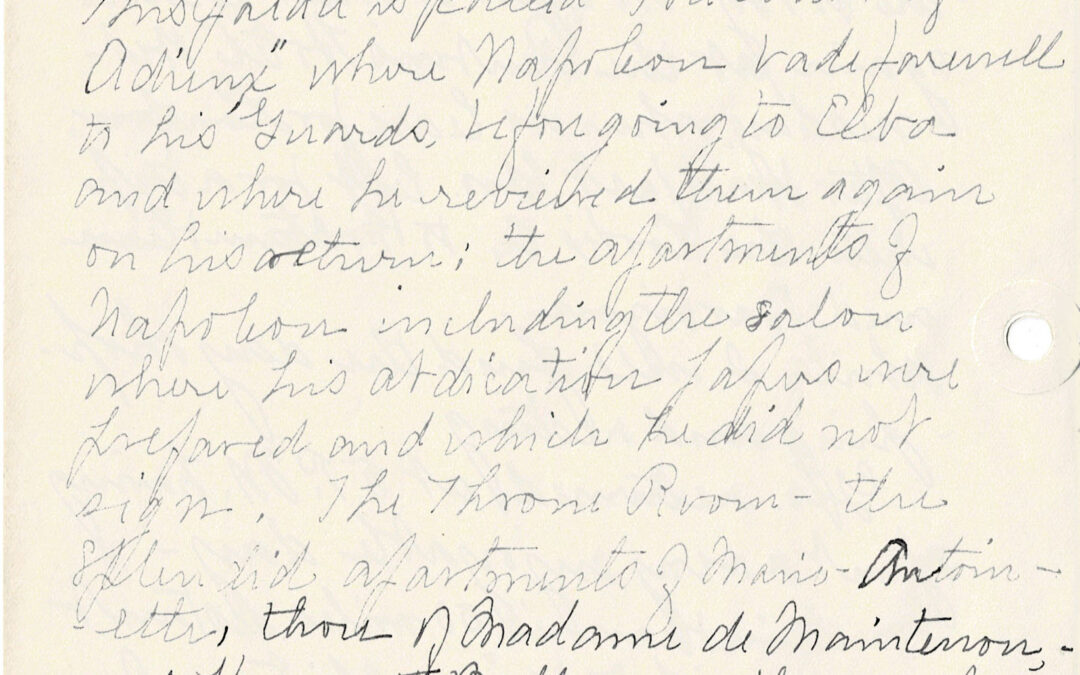 Adieux" where Napoleon bade farewell
to his Guards, before going to Elba
and where he reviewed them again
on his return; the apartments of
Napoleon including the salon
where his abdication papers were
prepared and which he did not
sign. The Throne Room - the
splendid apartments of Marie-Antoin-
-ette, those of Madame de Maintenon,-